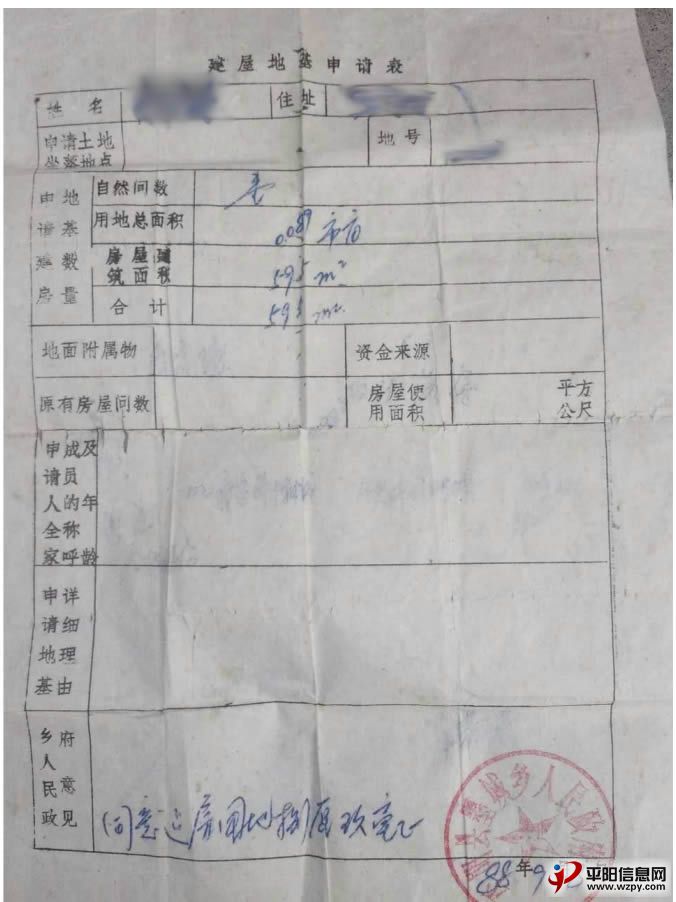 建屋地基申请表
姓名 住址
申请土地坐落地点 地号
申请建房 地基数量
自然间数 壹
用地总面积 0.089 市亩
房屋建筑面积 59.5 m²
合计 59.5 m²
地面附属物 资金来源
原有房屋间数 房屋使用面积 平方公尺
申请人全家 成员的年称呼及龄
申请地基 详细理由
乡人民政府意见
同意 房用地
城乡人民政
88年9
平阳信息网
www.wzpy.com